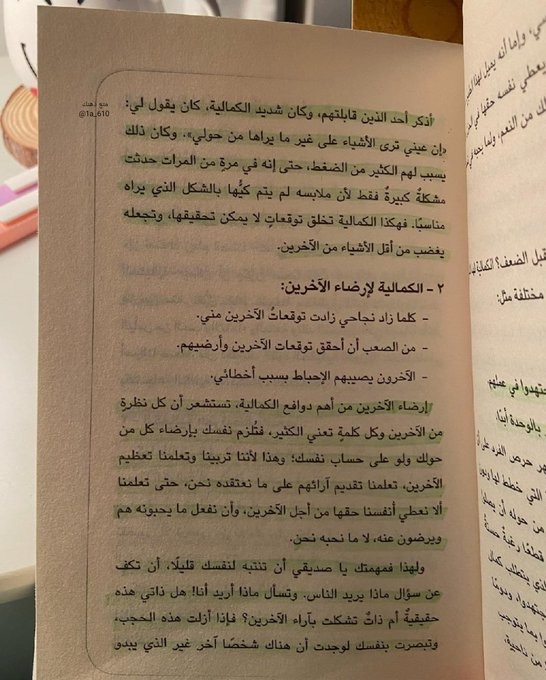 منع ذهنك
@1a_610
أذكر أحد الذين قابلتهم، وكان شديد الكمالية، كان يقول لي:
«إن عيني ترى الأشياء على غير ما يراها من حولي». وكان ذلك
يسبب لهم الكثير من الضغط، حتى إنه في مرةٍ من المرات حدثت
مشكلةٌ كبيرةٌ فقط لأن ملابسه لم يتم كيُّها بالشكل الذي يراه
مناسبًا. فهكذا الكمالية تخلق توقعاتٍ لا يمكن تحقيقها، وتجعله
يغضب من أقل الأشياء من الآخرين.
٢ - الكمالية لإرضاء الآخرين:
- كلما زاد نجاحي زادت توقعاتُ الآخرين مني.
- من الصعب أن أحقق توقعات الآخرين وأرضيهم.
- الآخرون يصيبهم الإحباط بسبب أخطائي.
إرضاء الآخرين من أهم دوافع الكمالية، تستشعر أن كل نظرةٍ
من الآخرين وكل كلمةٍ تعني الكثير، فتُلزم نفسك بإرضاء كل من
حولك ولو على حساب نفسك؛ وهذا لأننا تربينا وتعلمنا تعظيم
الآخرين، تعلمنا تقديم آرائهم على ما نعتقده نحن، حتى تعلمنا
ألا نعطي أنفسنا حقها من أجل الآخرين، وأن نفعل ما يحبونه هم
ويرضون عنه، لا ما نحبه نحن.
ولهذا فمهمتك يا صديقي أن تنتبه لنفسك قليلًا، أن تكف
عن سؤال ماذا يريد الناس. وتسأل ماذا أريد أنا! هل ذاتي هذه
حقيقيةٌ أم ذاتٌ تشكلت بآراء الآخرين؟ فإذا أزلت هذه الحجب،
وتبصرت بنفسك لوجدت أن هناك شخصًا آخر غير الذي يبدو
وإما أنه يميل لهذا
يعطي نفسه حقها في
من النعم، ولما بحثه في
قبل الضعف؟
مختلفة مثل:
في عملهم
بالوحدة أبدًا
حرص الفرد على أن
التي خطط لها
من حوله أن
قطعًا رغبةٌ حسنةٌ
الذي يتطلب كمال